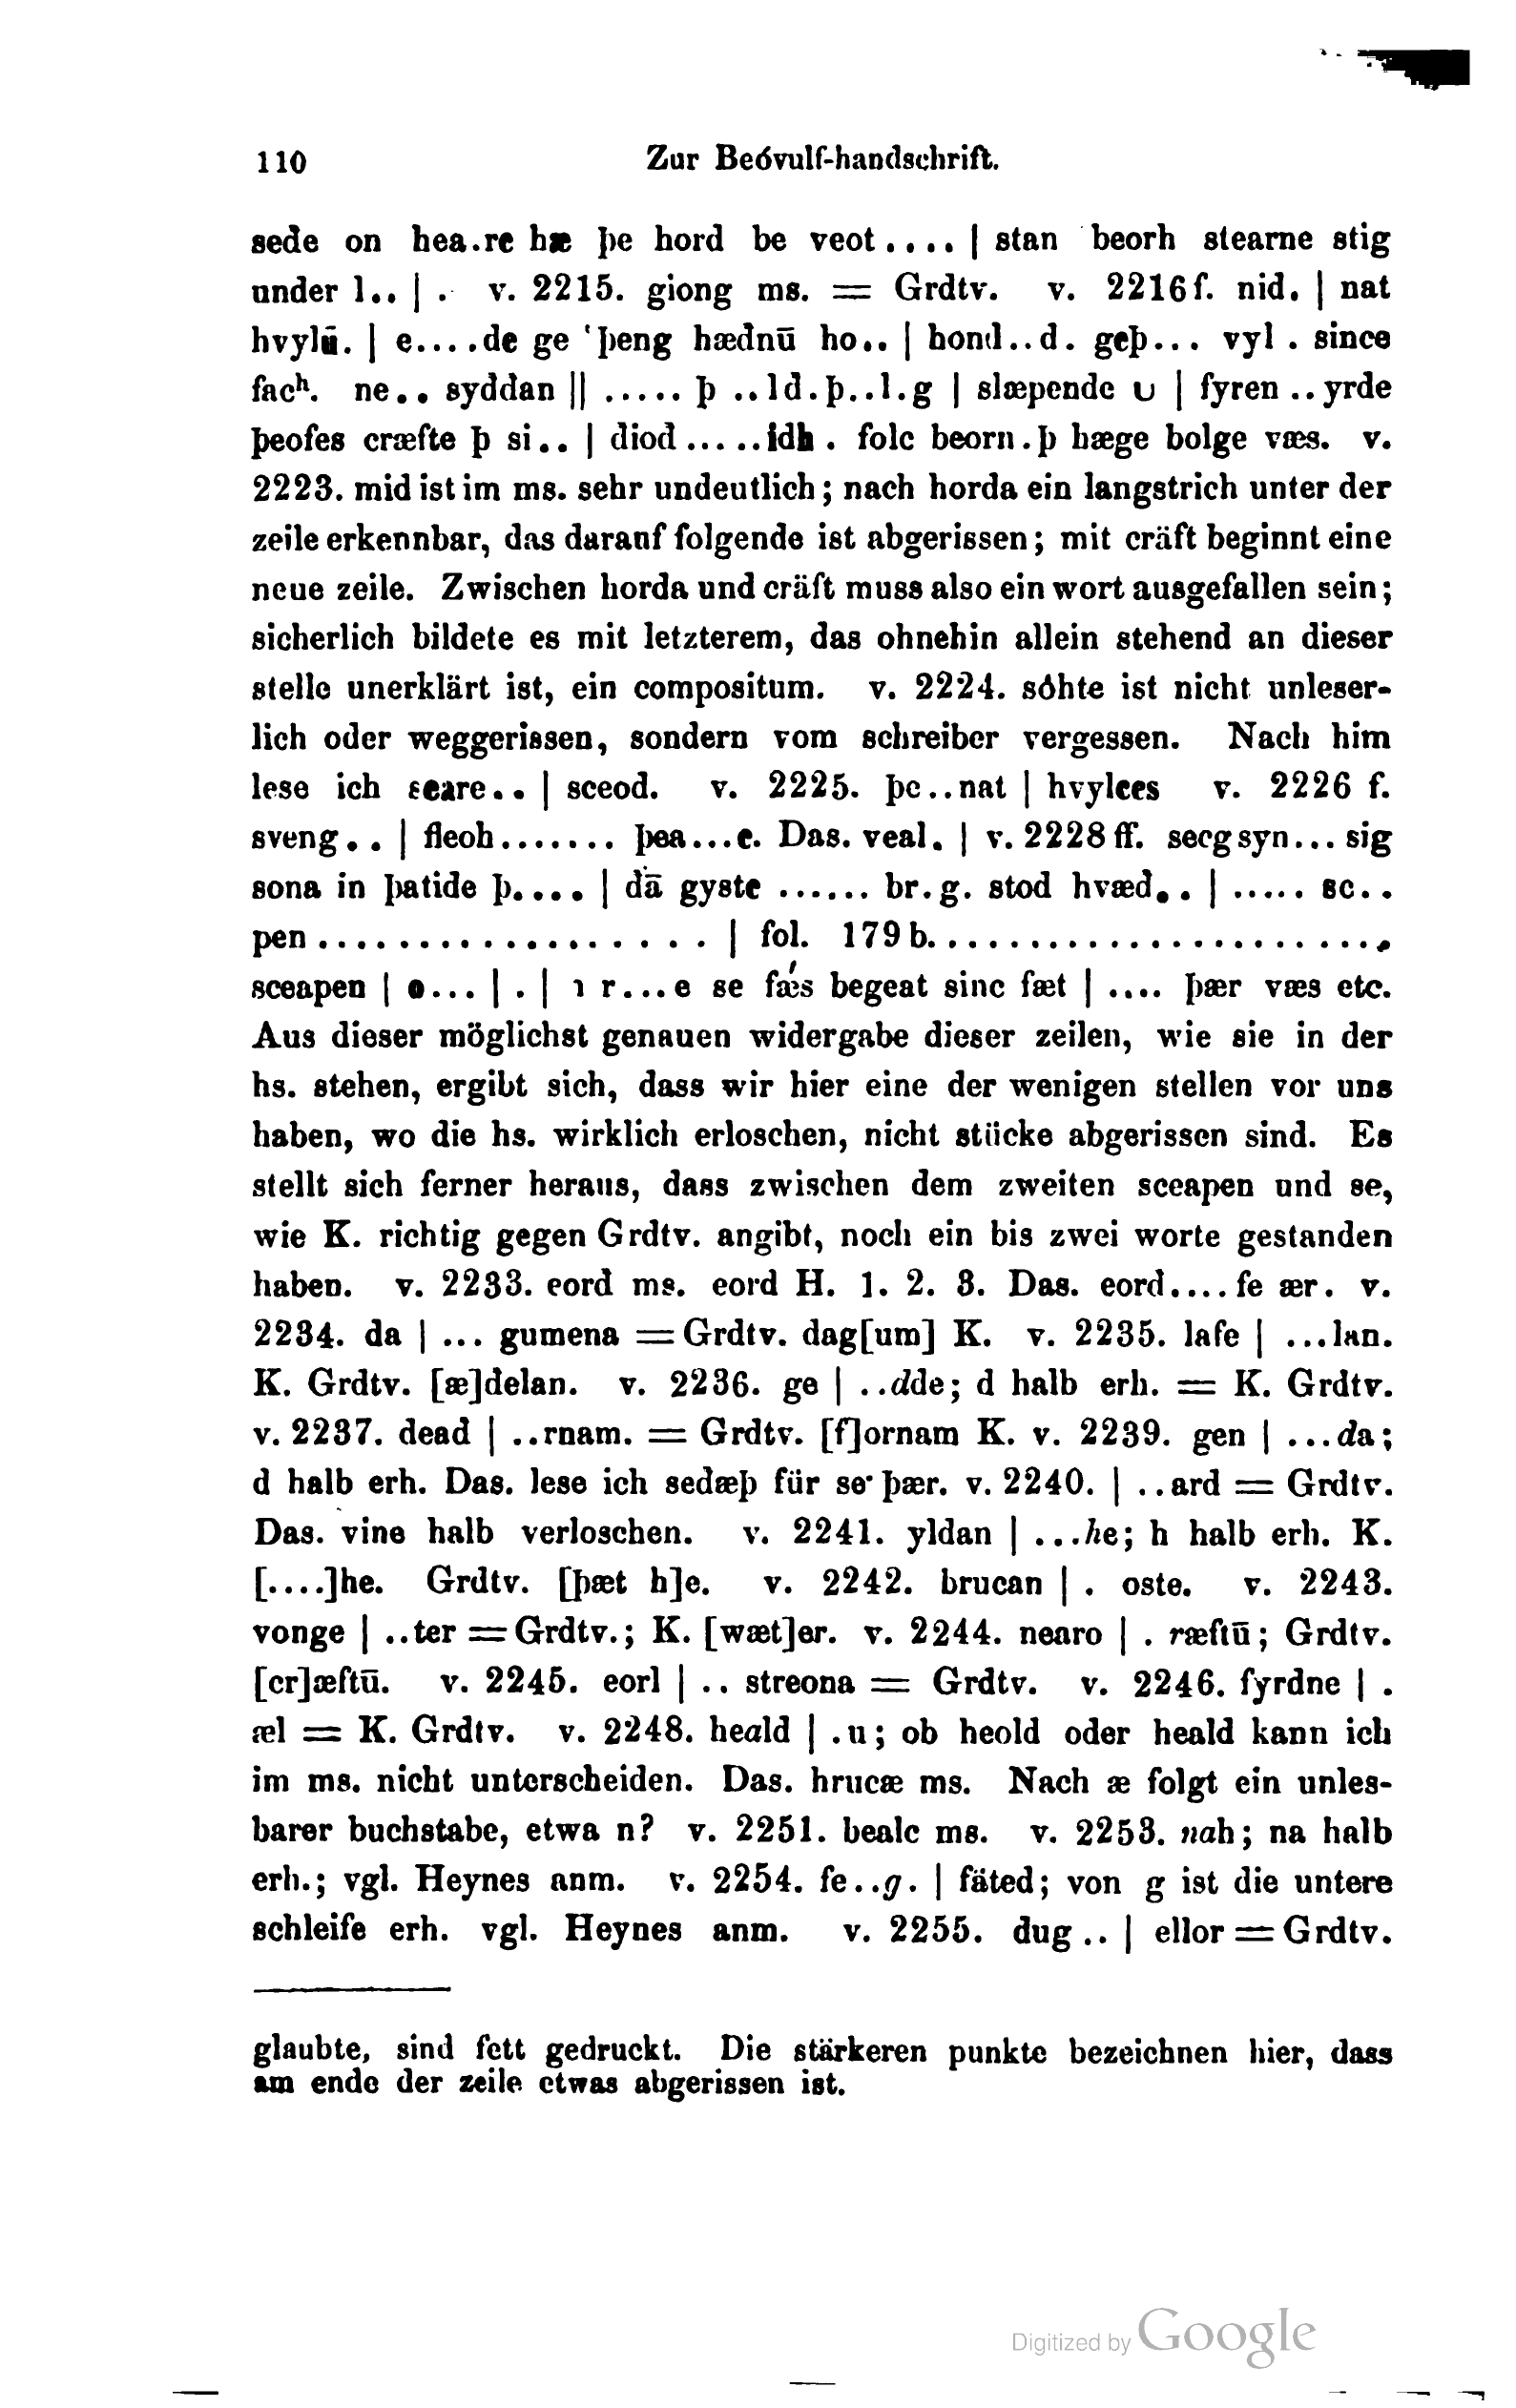 110 Zur Beóvulf-handschrift.
sede on hea.re hæ þe hord be veot.... | stan beorh stearne stig
under l.. | . v. 2215. giong ms. = Grdtv. v. 2216f. nid. | nat
hvylū. | e.....de ge 'þeng hædnū ho.. | hond..d. geþ... vyl . since
facʰ. ne.. syddan || ..... þ ..ld.þ..l.g | slæpende u | fyren ..yrde
þeofes cræfte þ si.. | diod ... ..idh . folc beorn.þ hæge bolge væs. v.
2223. mid ist im ms. sehr undeutlich; nach horda ein langstrich unter der
zeile erkennbar, das darauf folgende ist abgerissen; mit cräft beginnt eine
neue zeile. Zwischen horda und cräft muss also ein wort ausgefallen sein;
sicherlich bildete es mit letzterem, das ohnehin allein stehend an dieser
stelle unerklärt ist, ein compositum. v. 2224. sóhte ist nicht unleser-
lich oder weggerissen, sondern vom schreiber vergessen. Nach him
lese ich seare.. | sceod. v. 2225. þe..nat | hvylces v. 2226 f.
sveng.. | fleoh....... þea...e. Das. veal. | v. 2228 ff. secg syn... sig
sona in þatide þ.... | dā gyste ...... br.g. stod hvæd.. | ..... sc..
pen .................. | fol. 179 b.......................
sceapen | o... | . | ı r....e se fǽs begeat sinc fæt | .... þær væs etc.
Aus dieser möglichst genauen widergabe dieser zeilen, wie sie in der
hs. stehen, ergibt sich, dass wir hier eine der wenigen stellen vor uns
haben, wo die hs. wirklich erloschen, nicht stücke abgerissen sind. Es
stellt sich ferner heraus, dass zwischen dem zweiten sceapen und se,
wie K. richtig gegen Grdtv. angibt, noch ein bis zwei worte gestanden
haben. v. 2233. eord ms. eord H. 1. 2. 3. Das. eord.... fe ær. v.
2234. da | ... gumena = Grdtv. dag[um] K. v. 2235. lafe | ...lan.
K. Grdtv. [æ]delan. v. 2236. ge | ..dde; d halb erh. = K. Grdtv.
v. 2237. dead | ..rnam. = Grdtv. [f]ornam K. v. 2239. gen | ...da;
d halb erh. Das. lese ich sedæþ für se þær. v. 2240. | ..ard = Grdtv.
Das. vine halb verloschen. v. 2241. yldan | ...he; h halb erh. K.
[....]he. Grdtv. [þæt h]e. v. 2242. brucan | . oste. v. 2243.
vonge | ..ter = Grdtv.; K. [wæt]er. v. 2244. nearo | . ræftū; Grdtv.
[cr]æftū. v. 2245. eorl | .. streona = Grdtv. v. 2246. fyrdne | .
æl = K. Grdtv. v. 2248. heald | .u; ob heold oder heald kann ich
im ms. nicht unterscheiden. Das. hrucæ ms. Nach æ folgt ein unles-
barer buchstabe, etwa n? v. 2251. bealc ms. v. 2253. nah; na halb
erh.; vgl. Heynes anm. v. 2254. fe..g. | fäted; von g ist die untere
schleife erh. vgl. Heynes anm. v. 2255. dug .. | ellor = Grdtv.
glaubte, sind fett gedruckt. Die stärkeren punkte bezeichnen hier, dass
am ende der zeile etwas abgerissen ist.
Digitized by Google